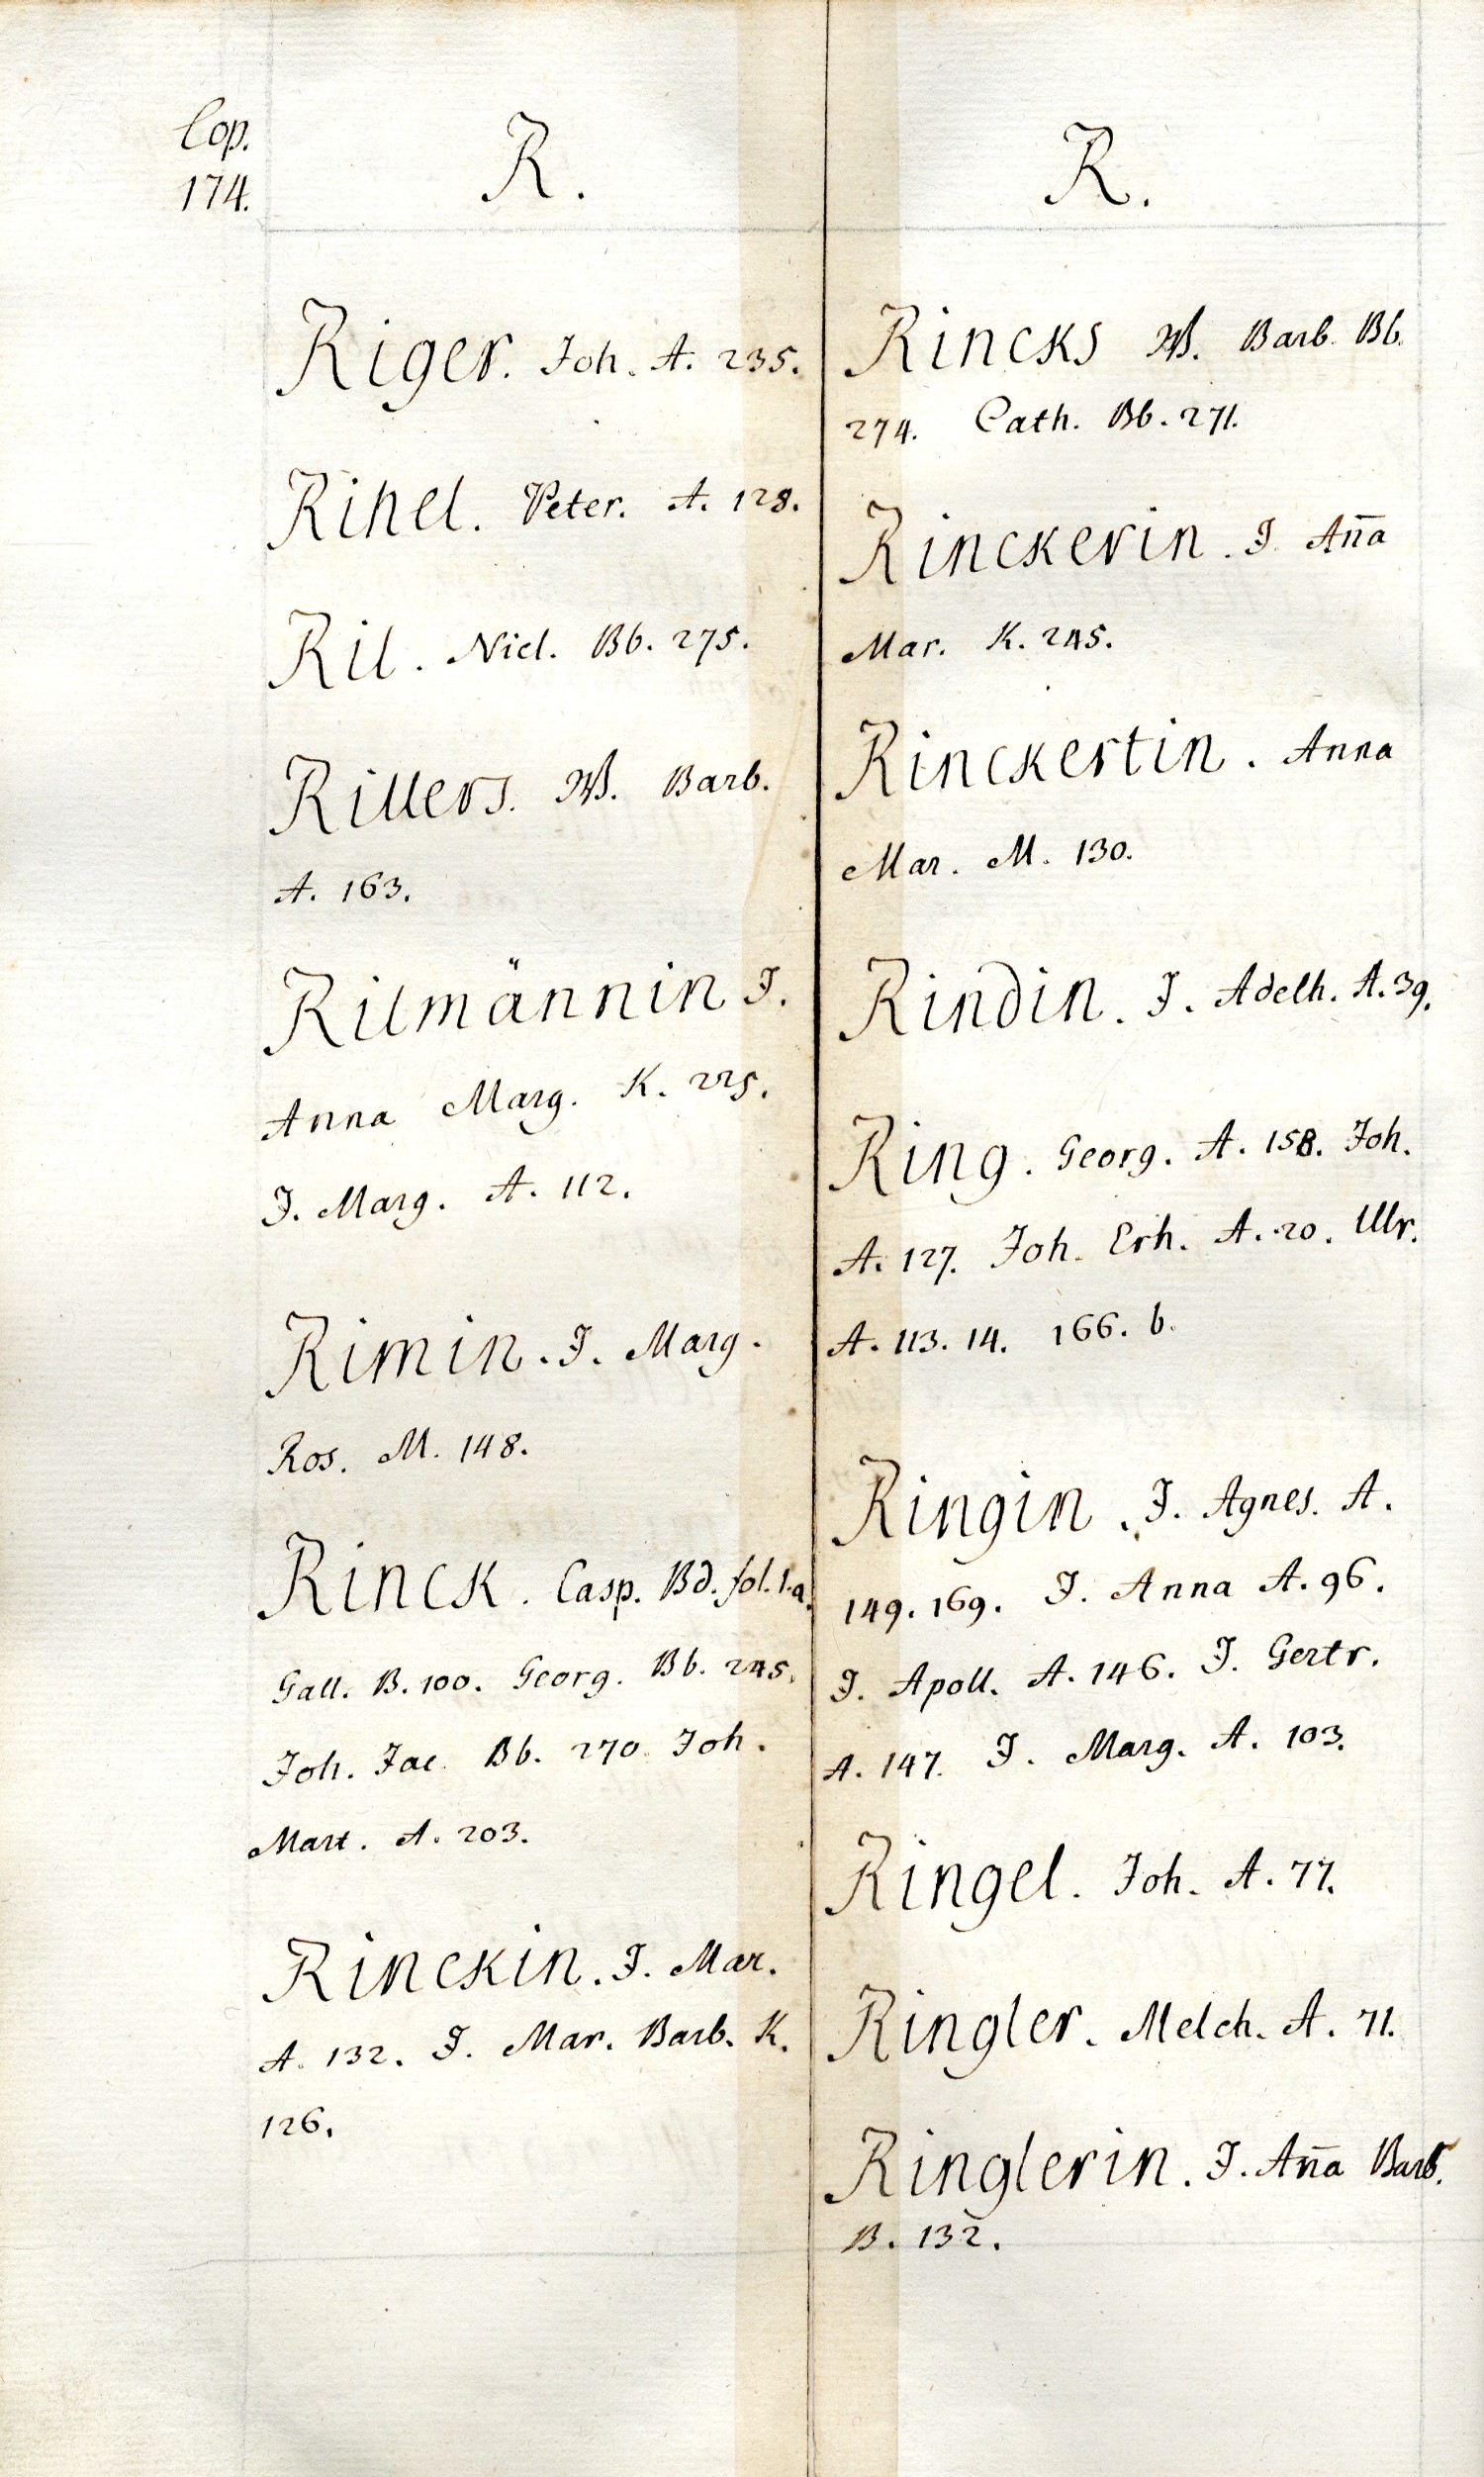 Cop.
174.
R.
Riger. Joh. A. 235.
Rihel. Peter. A. 128.
Ril. Nicl. Bb. 275.
Rillers. W. Barb.
A. 163.
Rilmännin J.
Anna Marg. K. 225.
J. Marg. A. 112.
Rimin. J. Marg.
Ros. M. 148.
Rinck. Casp. Bd. fol. 1. a.
Gall. B. 100. Georg. Bb. 245.
Joh. Jac. Bb. 270. Joh.
Mart. A. 203.
Rinckin. J. Mar.
A. 132. J. Mar. Barb. K.
126.
R.
Rincks W. Barb. Bb.
274. Cath. Bb. 271.
Rinckerin. J. Ana̅
Mar. K. 245.
Rinckertin. Anna
Mar. M. 130.
Rindin. J. Adelh. A. 39.
Ring. Georg. A. 158. Joh.
A. 127. Joh. Erh. A. 20. Ulr.
A. 113. 14. 166. b.
Ringin. J. Agnes. A.
149. 169. J. Anna A. 96.
J. Apoll. A. 146. J. Gertr.
A. 147. J. Marg. A. 103.
Ringel. Joh. A. 77.
Ringler. Melch. A. 71.
Ringlerin. J. An̅a Barb.
B. 132.